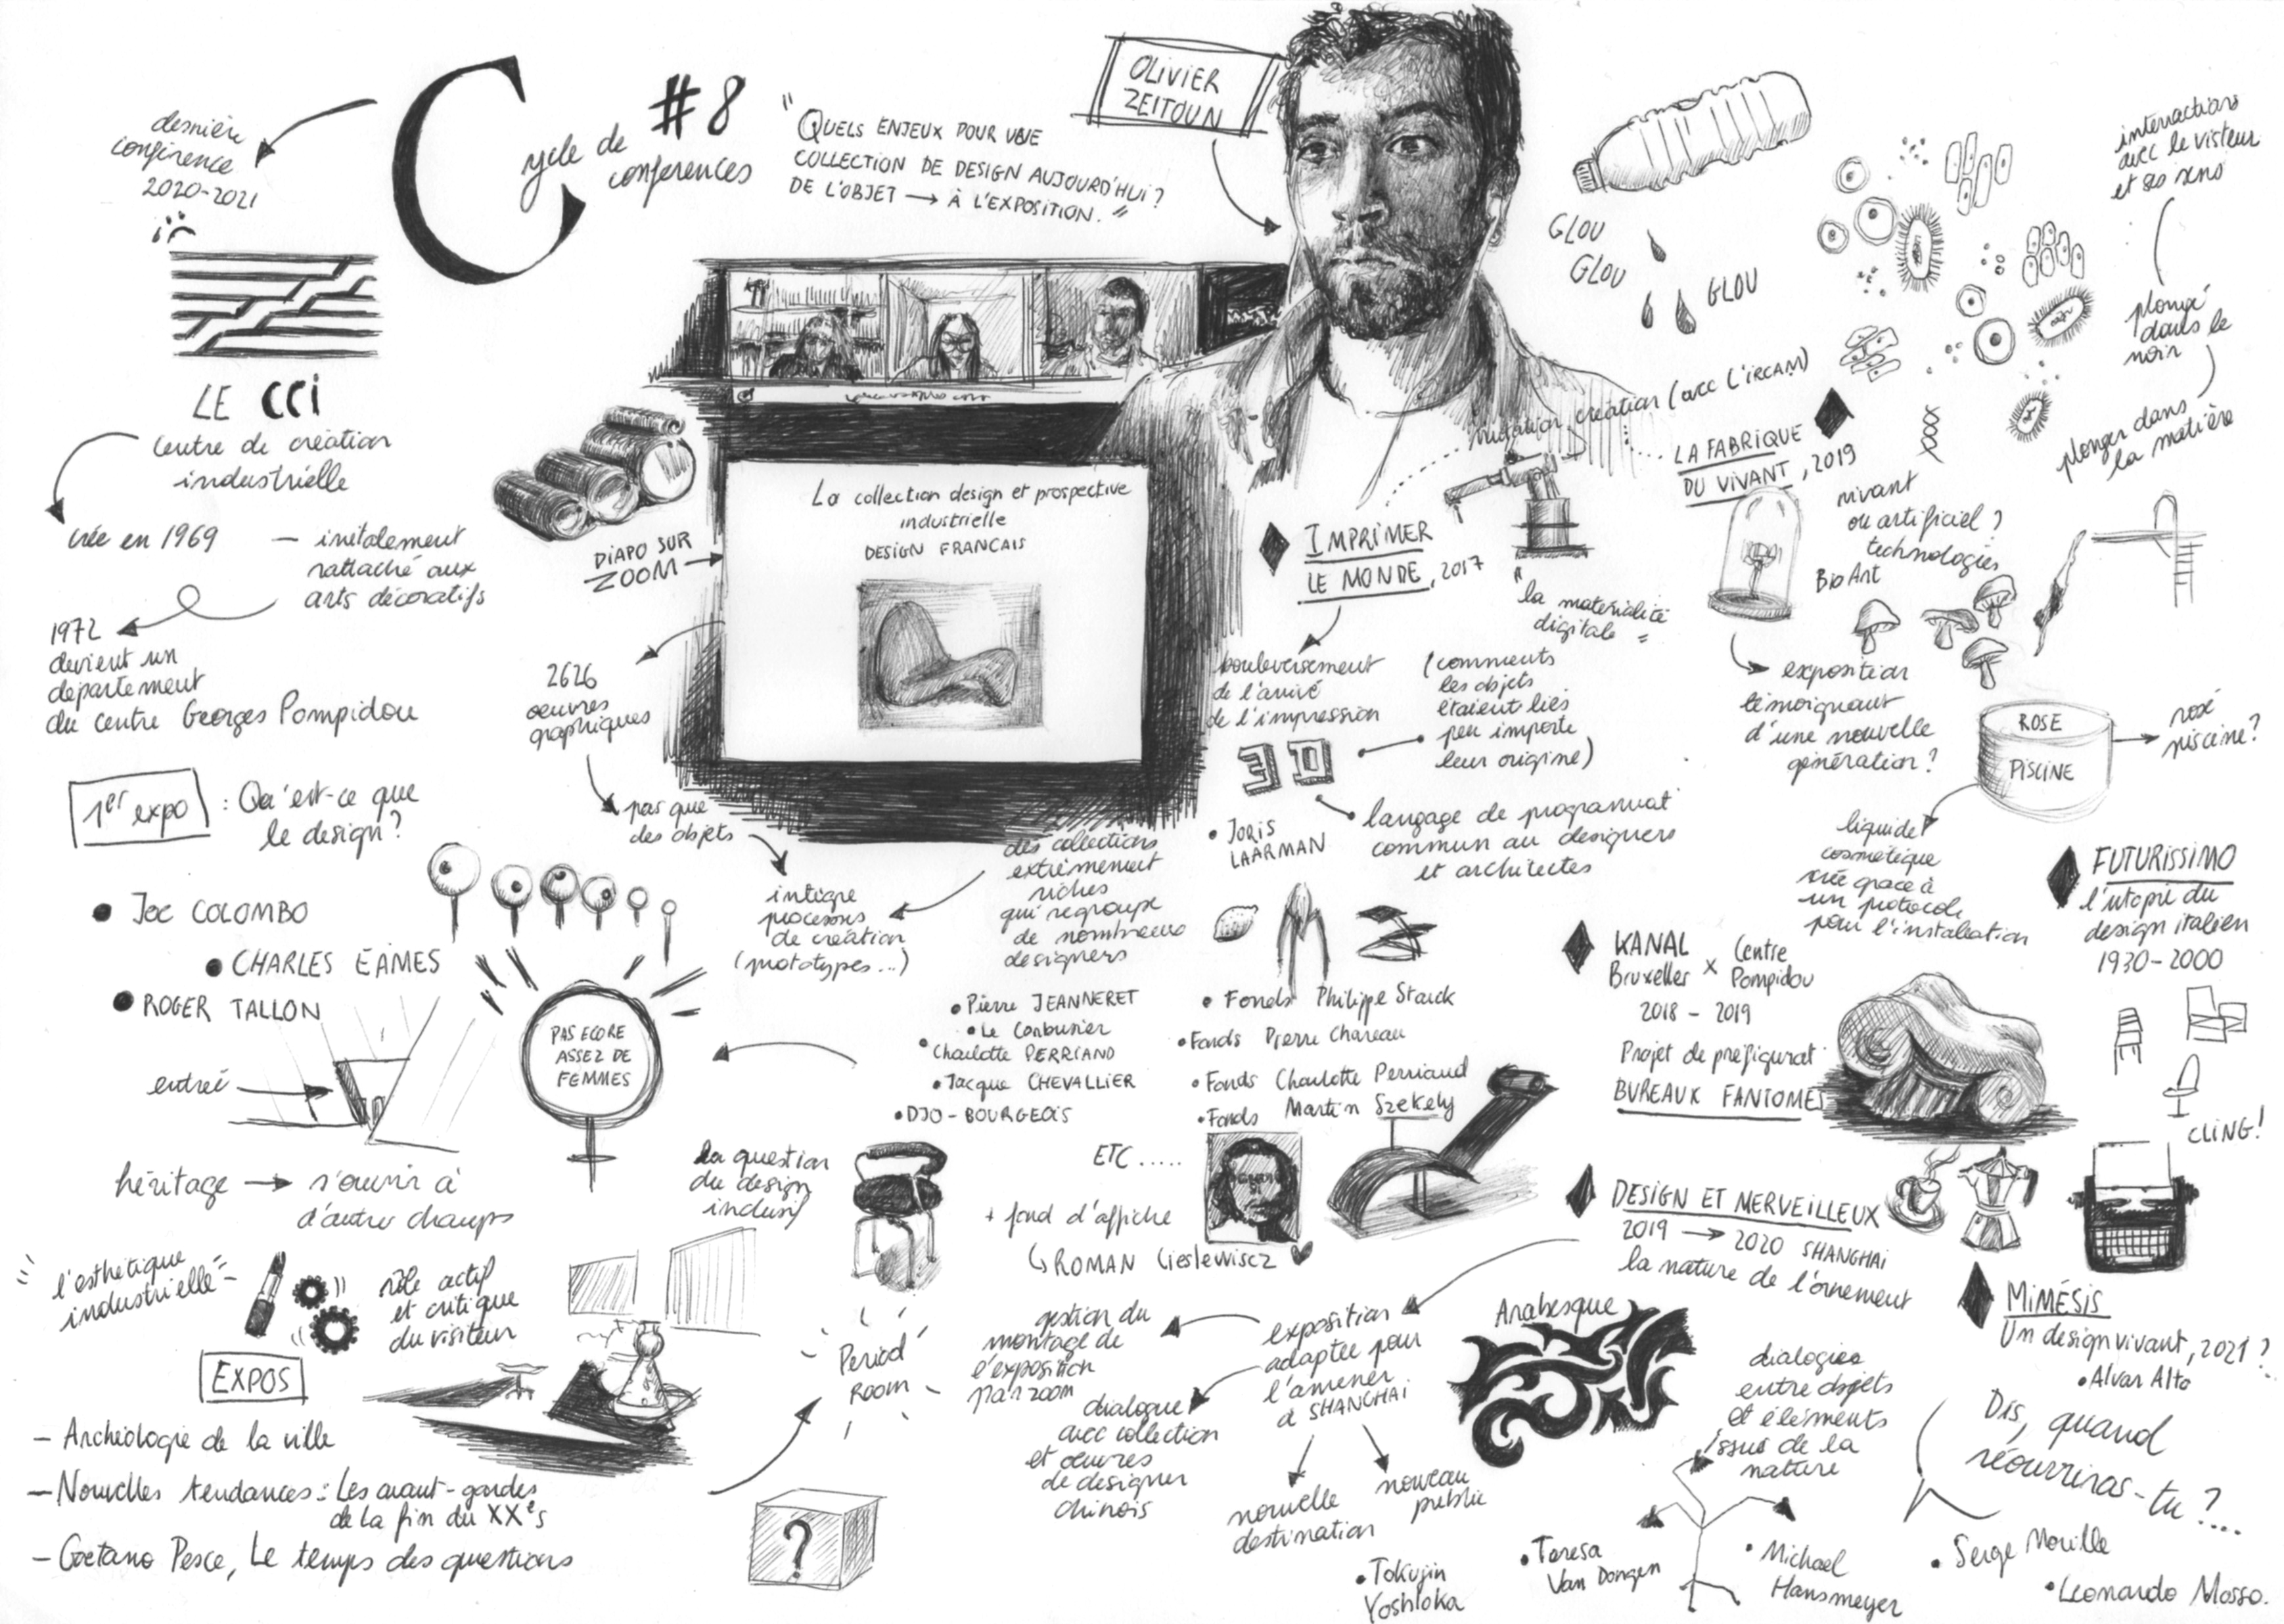 dernière
conférence
2020-2021
Cycle de
conferences
#8
"QUELS ENJEUX POUR UNE
COLLECTION DE DESIGN AUJOURD'HUI ?
DE L'OBJET → À L'EXPOSITION."
OLIVIER
ZEITOUN
LE CCI
Centre de création
industrielle
crée en 1969
— initalement
rattaché aux
arts décoratifs
1972
devient un
département
du centre Georges Pompidou
1er expo
: Qu'est-ce que
le design ?
• JOE COLOMBO
• CHARLES EAMES
• ROGER TALLON
entreé
PAS ECORE
ASSEZ DE
FEMMES
héritage → s'ouvrir à
d'autres champs
"l'esthétique
industrielle"
rôle actif
et critique
du visiteur
EXPOS
— Archéologie de la ville
— Nouvelles tendances : Les avant-gardes
de la fin du XXe s
— Gaetano Pesce, Le temps des questions
DIAPO SUR
ZOOM
La collection design et prospective
industrielle
DESIGN FRANCAIS
2626
oeuvres
graphiques
pas que
des objets
intègre
processus
de création
(prototypes...)
des collections
extrêmement
riches
qui regroupe
de nombreux
designers
• Pierre JEANNERET
• Le Corbusier
• Charlotte PERRIAND
• Jacque CHEVALLIER
• DJO-BOURGEOIS
ETC .....
• Fonds Philippe Starck
• Fonds Pierre Chareau
• Fonds Charlotte Perriand
• Fonds Martin Szekely
+ fond d'affiche
ROMAN Cieslewiscz
la question
du design
inclusif
Period
ROOM
?
GLOU
GLOU
GLOU
IMPRIMER
LE MONDE, 2017
"la matérialité
digitale"
bouleversement
de l'arrivé
de l'impression
3D
(comments
les objets
étaient liés
peu importe
leur origine)
• JORIS
LAARMAN
langage de programmat°
commun au designers
et architectes
création (avec L'IRCAM)
LA FABRIQUE
DU VIVANT, 2019
vivant
ou artificiel ?
technologies
Bio Art
interractions
avec le visiteur
et ses sens
plongé
dans le
noir
plonger dans
la matière
exposition
témoignant
d'une nouvelle
génération ?
ROSE
PISCINE
rosé
piscine ?
liquide
cosmétique
crée grace à
un protocole
pour l'installation
KANAL
Bruxelles x Centre
Pompidou
2018 - 2019
Projet de préfigurat°
BUREAUX FANTOMES
FUTURISSIMO
l'utopie du
design italien
1930-2000
CLING!
DESIGN ET MERVEILLEUX
2019 → 2020 SHANGHAI
la nature de l'ornement
exposition
adaptée pour
l'amener
à SHANGHAI
gestion du
montage de
l'exposition
par zoom
dialogue
avec collection
et oeuvres
de designer
chinois
nouvelle
destination
nouveau
public
Arabesque
dialogies
entre objets
et éléments
issus de la
nature
• Tokujin
Yoshioka
• Teresa
Van Dongen
• Michael
Hansmeyer
MIMÉSIS
Un design vivant, 2021 ?
• Alvar Alto
Dis, quand
réouvriras-tu ?....
• Serge Mouille
• Leonardo Mosso.